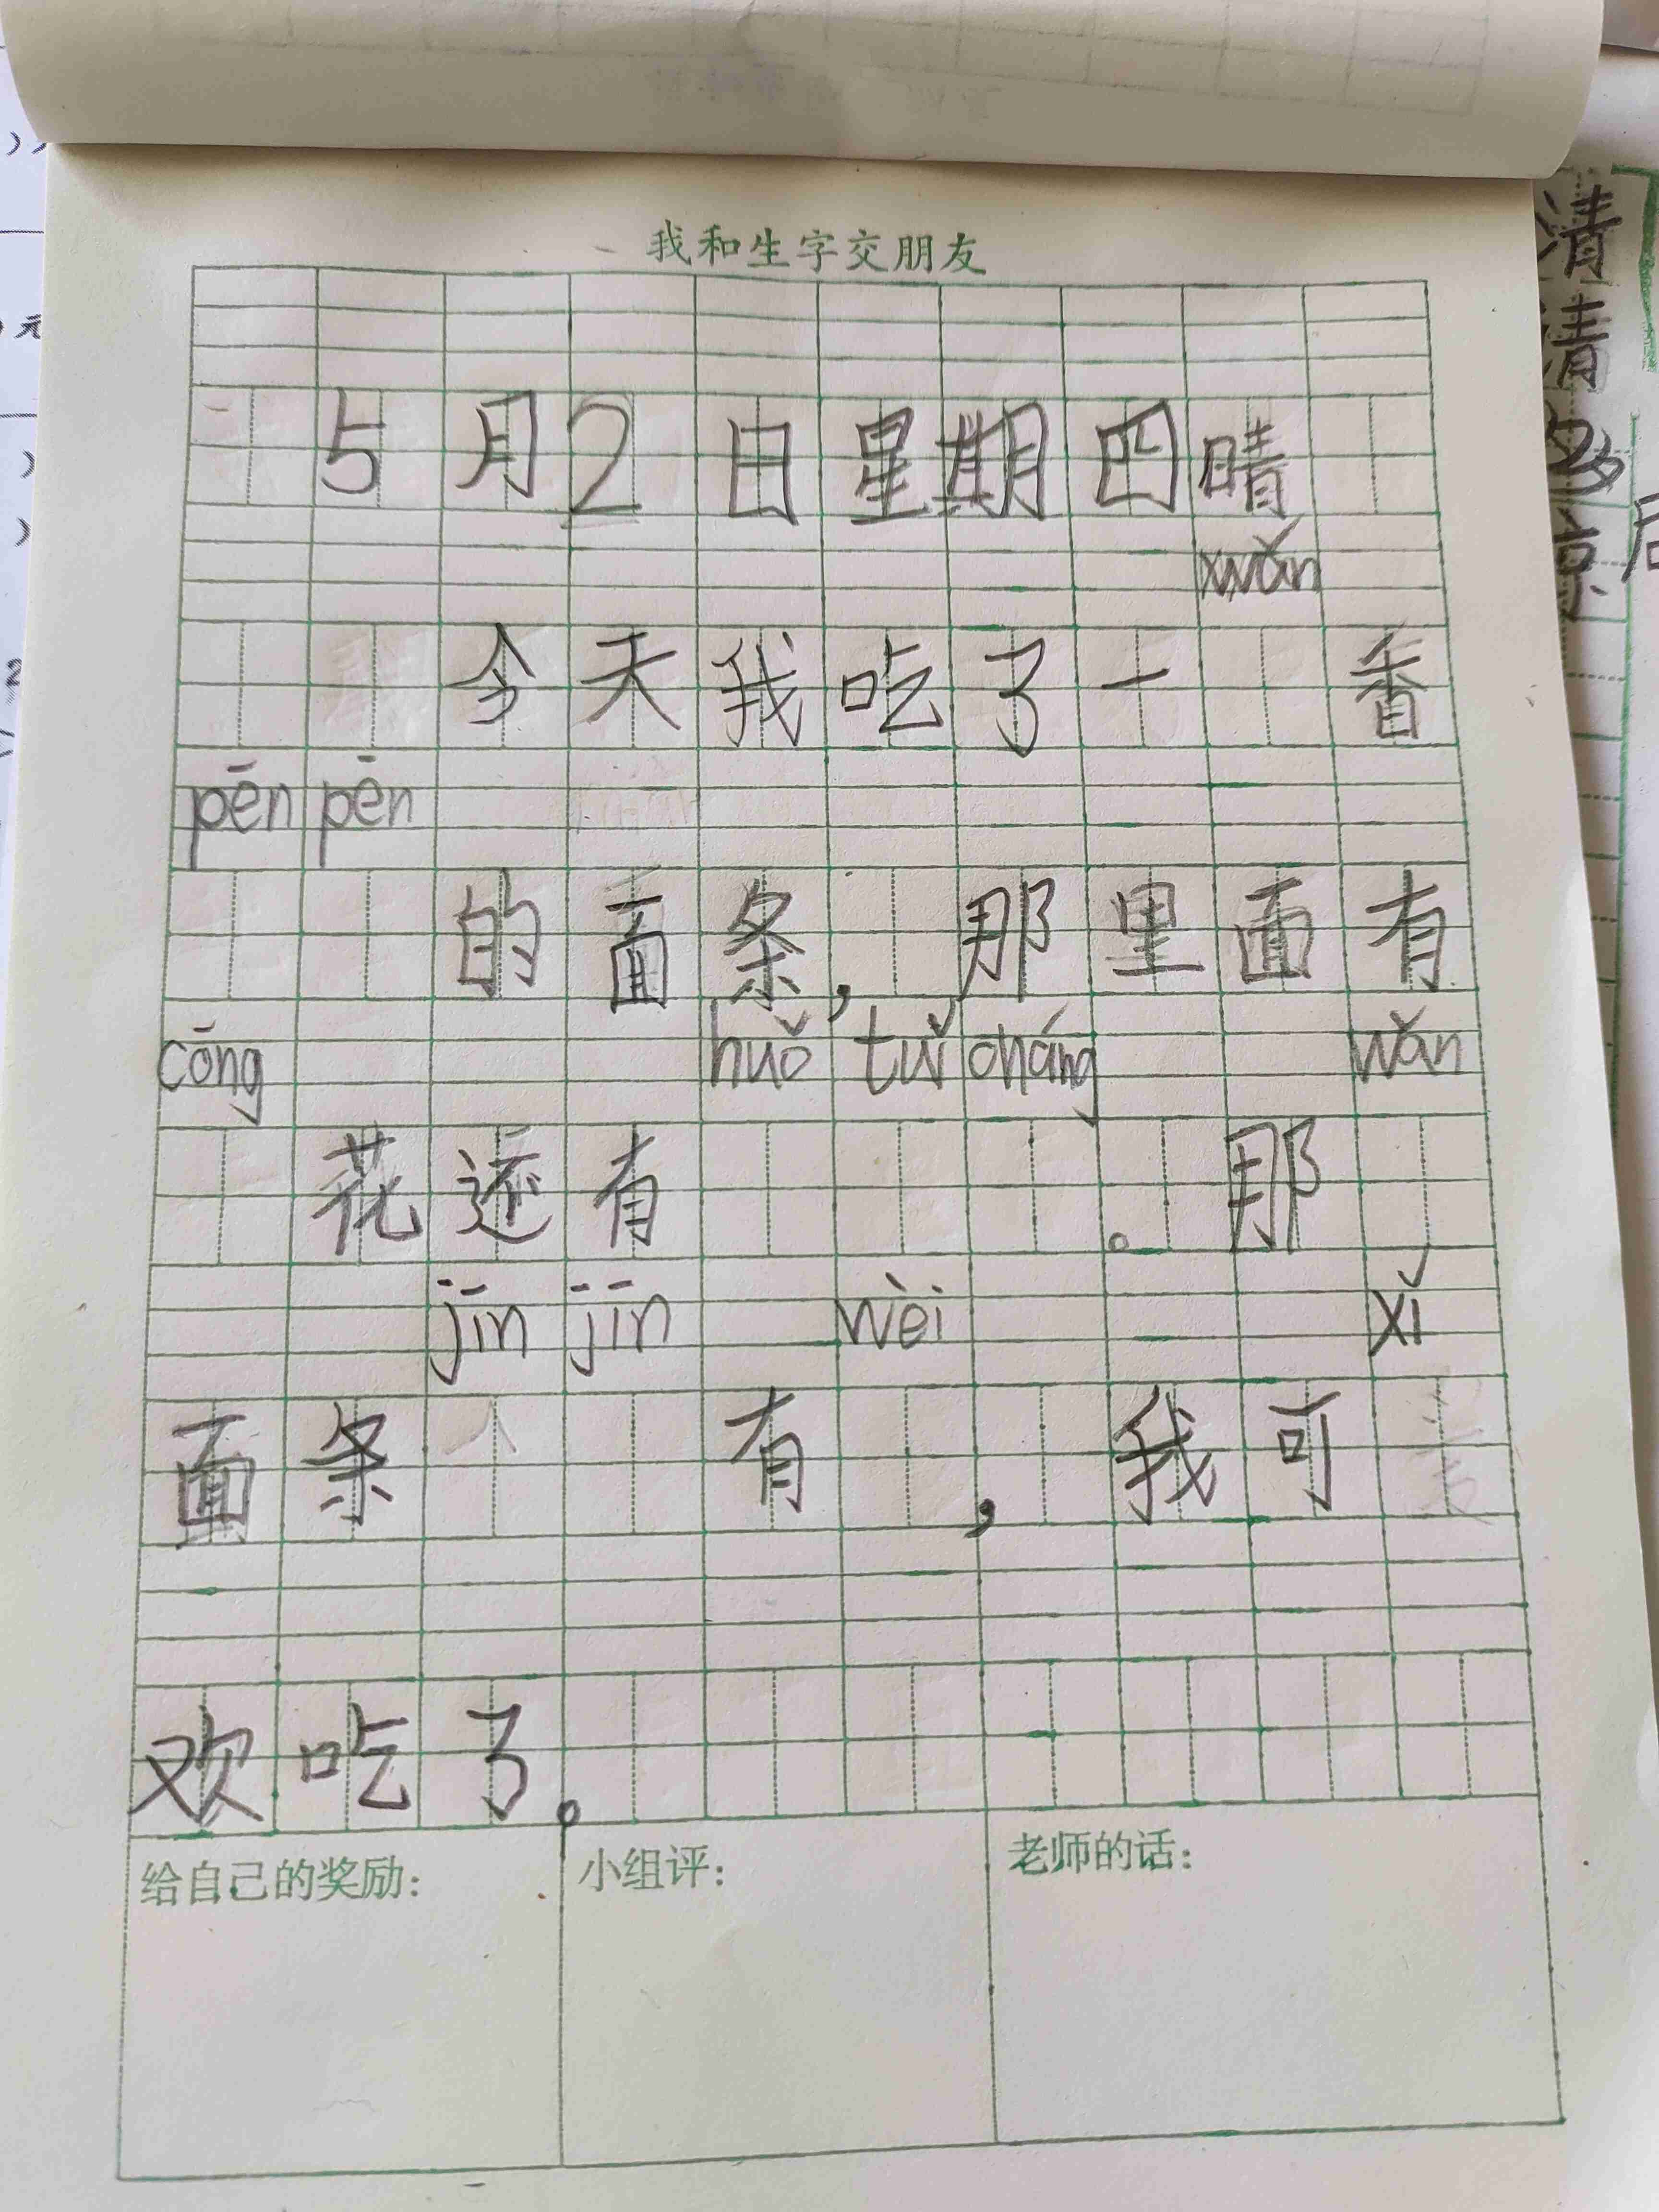 我和生字交朋友
5月2日星期四晴
xwǎn
今天我吃了一 香
pēn pēn
的面条，那里面有
cōng huǒ tuǐ cháng wǎn
花还有 。那
jīn jīn wèi xǐ
面条 有 ，我可
欢吃了。
给自己的奖励：
小组评：
老师的话：
清
清